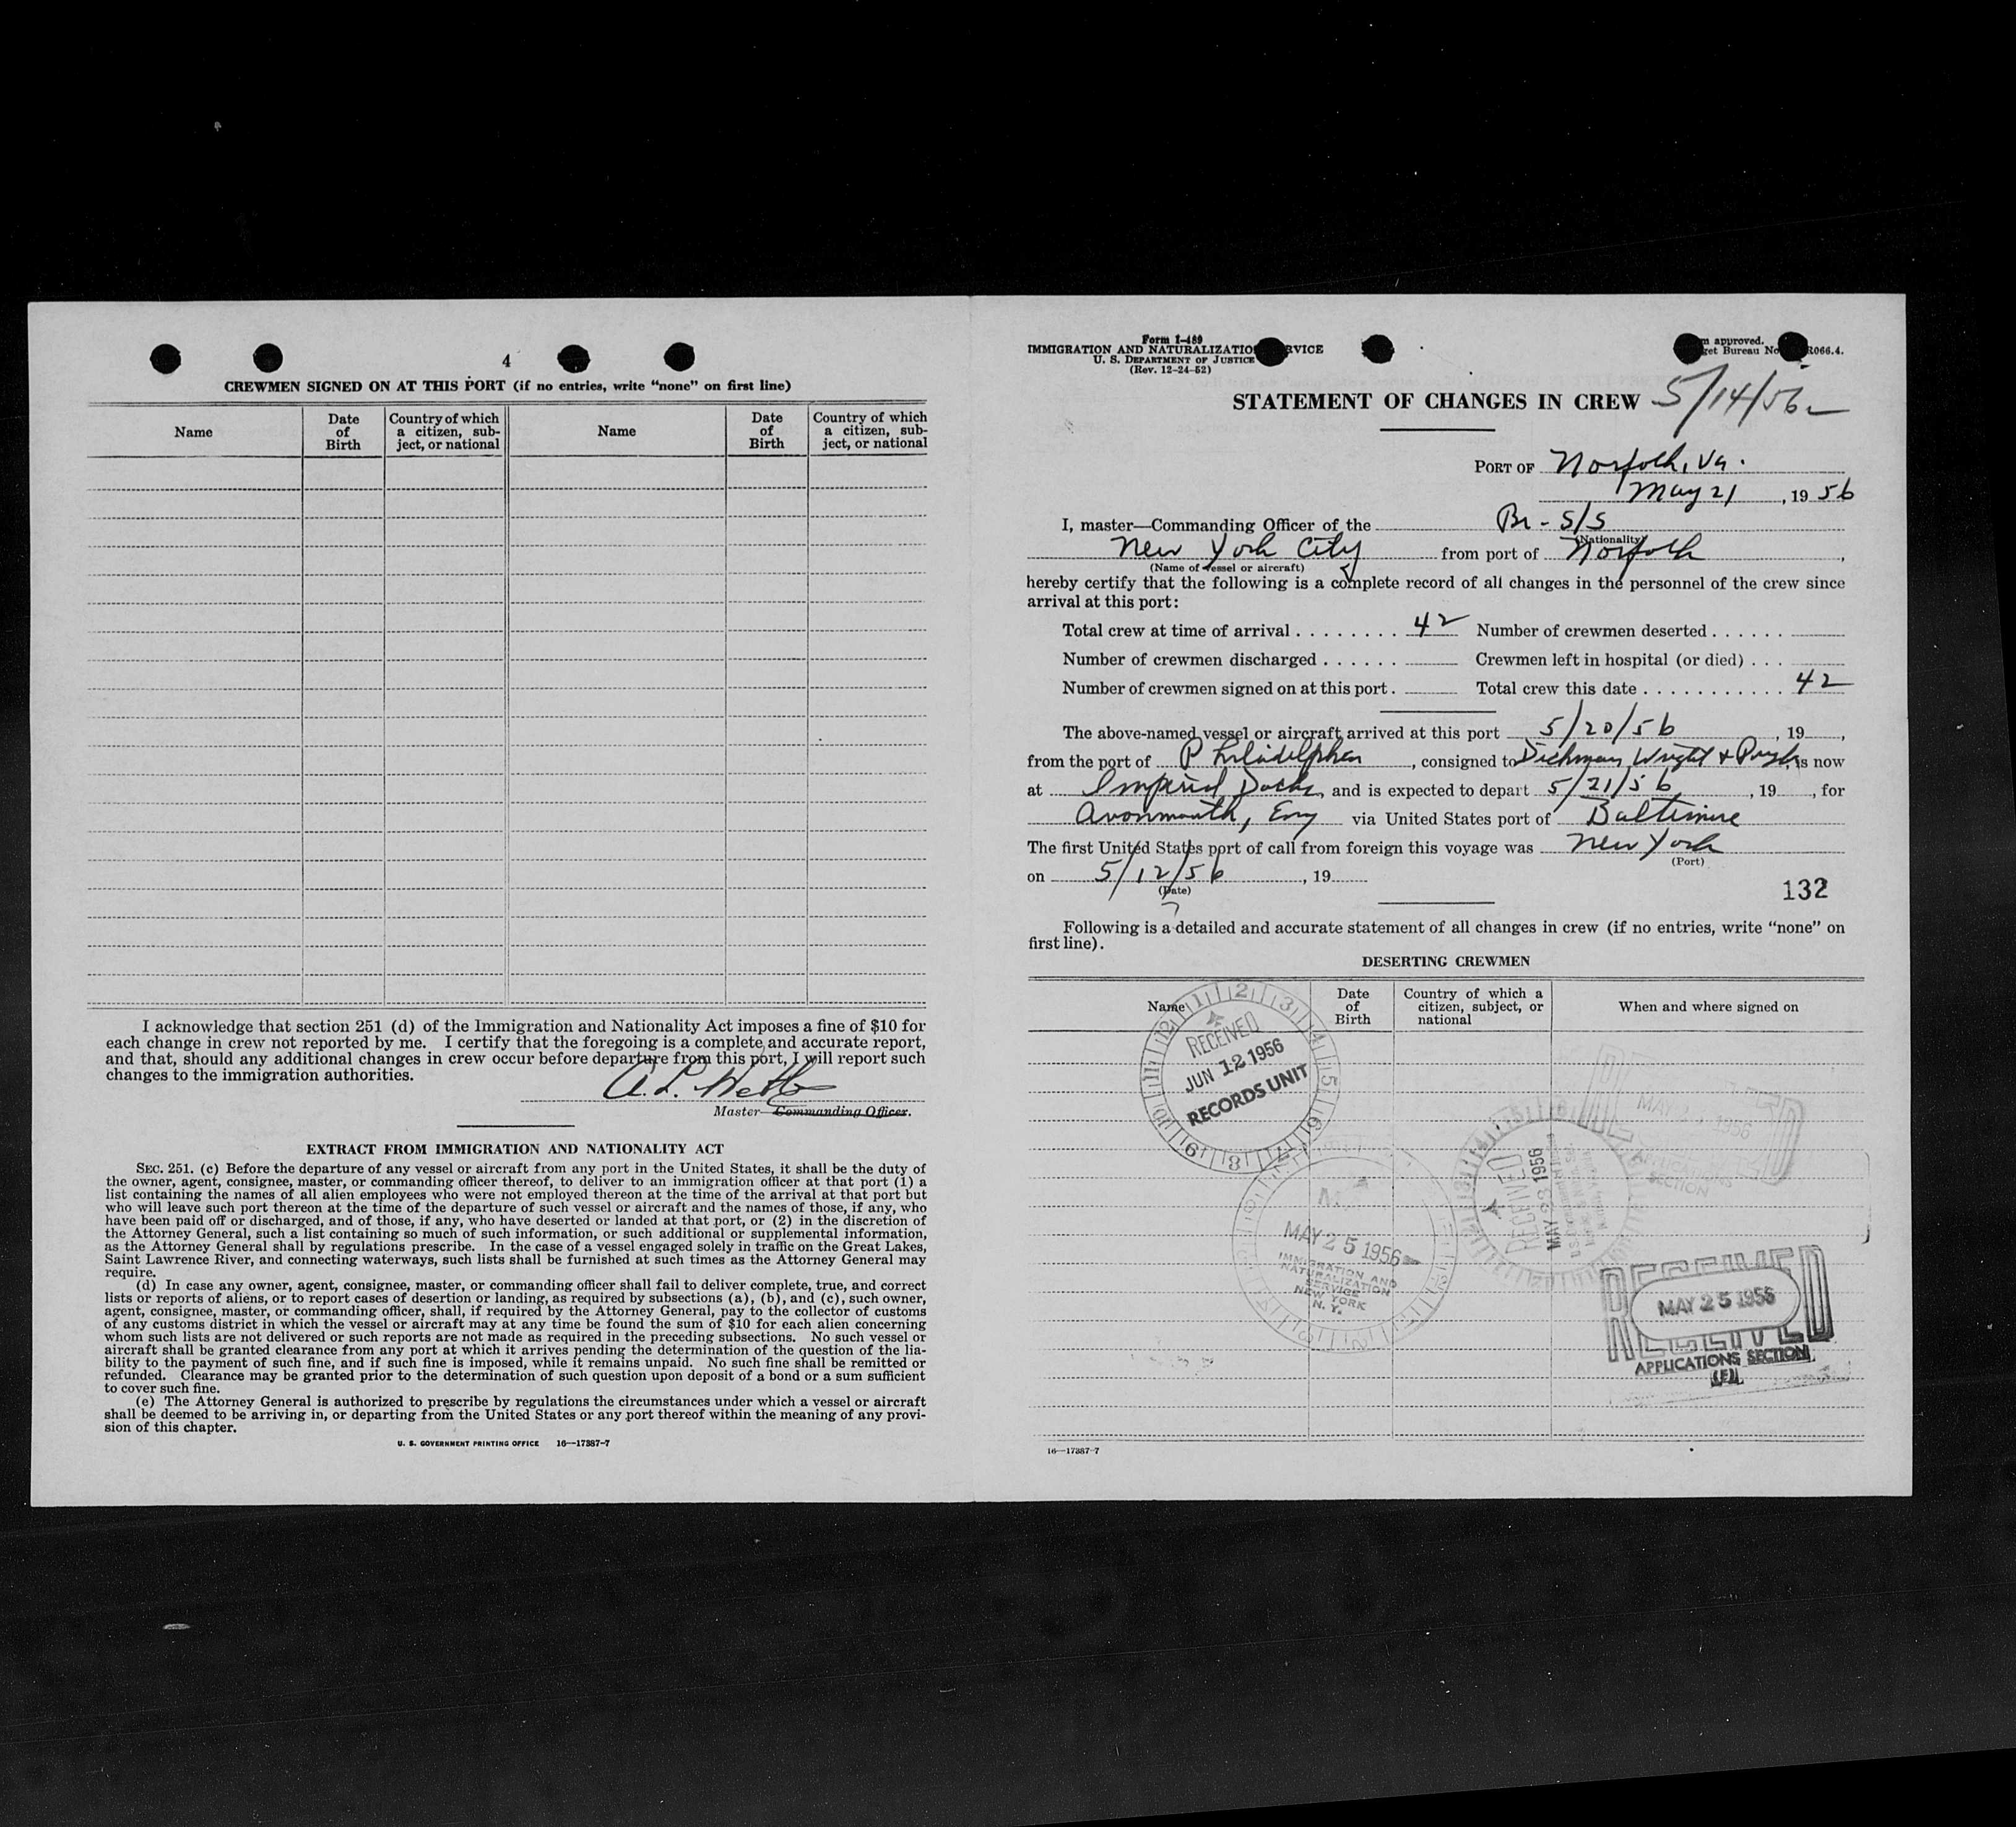 4
CREWMEN SIGNED ON AT THIS PORT (if no entries, write “none” on first line)
Name
Date of Birth
Country of which a citizen, sub-ject, or national
Name
Date of Birth
Country of which a citizen, sub-ject, or national
I acknowledge that section 251 (d) of the Immigration and Nationality Act imposes a fine of $10 for
each change in crew not reported by me. I certify that the foregoing is a complete and accurate report,
and that, should any additional changes in crew occur before departure from this port, I will report such
changes to the immigration authorities.
A. L. Webb
Master—Commanding Officer.
EXTRACT FROM IMMIGRATION AND NATIONALITY ACT
SEC. 251. (c) Before the departure of any vessel or aircraft from any port in the United States, it shall be the duty of
the owner, agent, consignee, master, or commanding officer thereof, to deliver to an immigration officer at that port (1) a
list containing the names of all alien employees who were not employed thereon at the time of the arrival at that port but
who will leave such port thereon at the time of the departure of such vessel or aircraft and the names of those, if any, who
have been paid off or discharged, and of those, if any, who have deserted or landed at that port, or (2) in the discretion of
the Attorney General, such a list containing so much of such information, or such additional or supplemental information,
as the Attorney General shall by regulations prescribe. In the case of a vessel engaged solely in traffic on the Great Lakes,
Saint Lawrence River, and connecting waterways, such lists shall be furnished at such times as the Attorney General may
require.
(d) In case any owner, agent, consignee, master, or commanding officer shall fail to deliver complete, true, and correct
lists or reports of aliens, or to report cases of desertion or landing, as required by subsections (a), (b), and (c), such owner,
agent, consignee, master, or commanding officer, shall, if required by the Attorney General, pay to the collector of customs
of any customs district in which the vessel or aircraft may at any time be found the sum of $10 for each alien concerning
whom such lists are not delivered or such reports are not made as required in the preceding subsections. No such vessel or
aircraft shall be granted clearance from any port at which it arrives pending the determination of the question of the lia-
bility to the payment of such fine, and if such fine is imposed, while it remains unpaid. No such fine shall be remitted or
refunded. Clearance may be granted prior to the determination of such question upon deposit of a bond or a sum sufficient
to cover such fine.
(e) The Attorney General is authorized to prescribe by regulations the circumstances under which a vessel or aircraft
shall be deemed to be arriving in, or departing from the United States or any port thereof within the meaning of any provi-
sion of this chapter.
U. S. GOVERNMENT PRINTING OFFICE 16—17387-7
Form I-489
IMMIGRATION AND NATURALIZATIO RVICE
U. S. DEPARTMENT OF JUSTICE
(Rev. 12-24-52)
m approved.
get Bureau No. R066.4.
STATEMENT OF CHANGES IN CREW 5/14/56
PORT OF Norfolk, Va.
May 21, 19 56
I, master—Commanding Officer of the Br - S/S
(Nationality)
New York City from port of Norfolk,
(Name of vessel or aircraft)
hereby certify that the following is a complete record of all changes in the personnel of the crew since
arrival at this port:
Total crew at time of arrival . . . . . . . . 42 Number of crewmen deserted . . . . . .
Number of crewmen discharged . . . . . . Crewmen left in hospital (or died) . . .
Number of crewmen signed on at this port . Total crew this date . . . . . . . . . . . 42
The above-named vessel or aircraft arrived at this port 5/20/56, 19 ,
from the port of Philadelphia, consigned to Dichman, Wright & Pugh, is now
at Imperial Docks, and is expected to depart 5/21/56, 19 , for
Avonmouth, Eng via United States port of Baltimore
The first United States port of call from foreign this voyage was New York
(Port)
on 5/12/56, 19
(Date)
132
Following is a detailed and accurate statement of all changes in crew (if no entries, write “none” on
first line).
DESERTING CREWMEN
Name
Date of Birth
Country of which a citizen, subject, or national
When and where signed on
RECEIVED
JUN 12 1956
RECORDS UNIT
MAY 25 1956
IMMIGRATION AND
NATURALIZATION
SERVICE
NEW YORK
N. Y.
RECEIVED
MAY 23 1956
SECTION
RECEIVED
MAY 25 1956
APPLICATIONS SECTION
16—17387-7